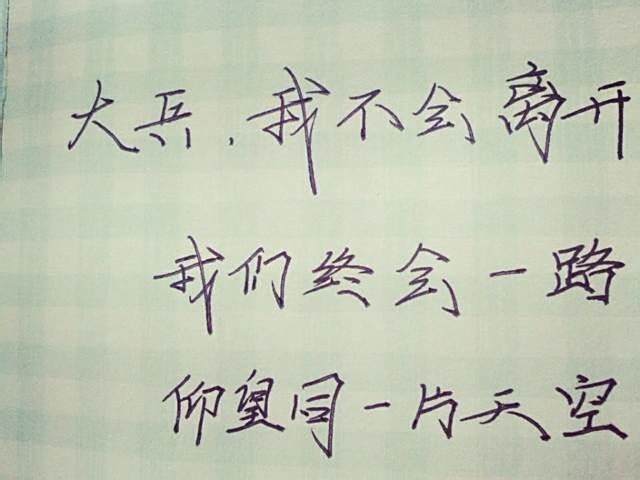 大兵,我不会离开
我们终会一路
仰望同一片天空